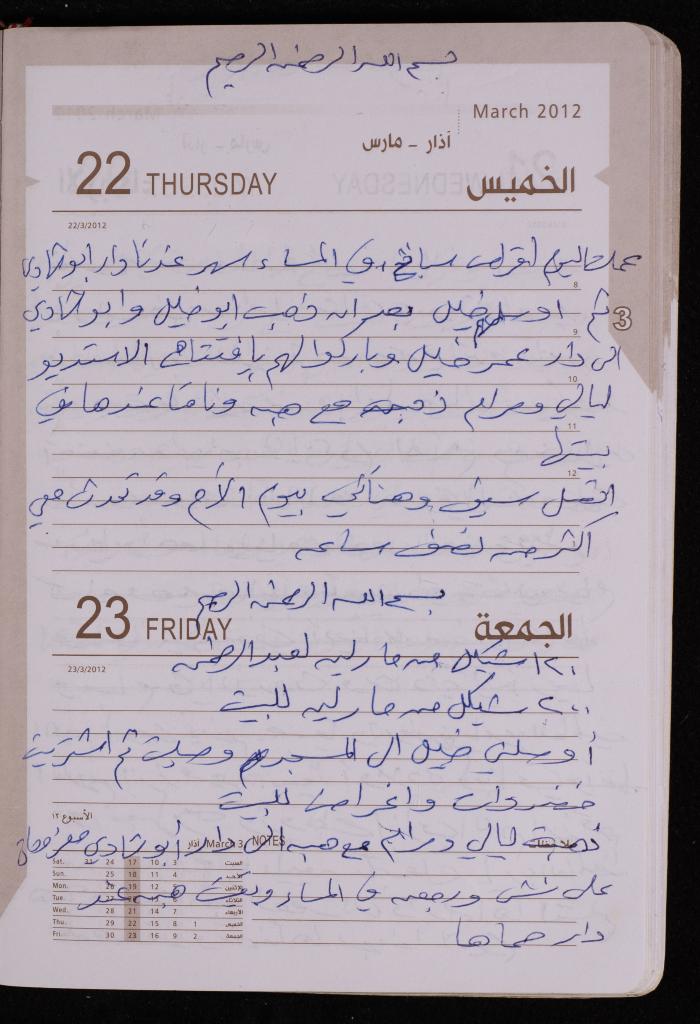 بسم الله الرحمن الرحيم
March 2012
آذار - مارس
22 THURSDAY الخميس
22/3/2012
عملت اليوم اقراص سبانخ، في المساء سهر عندنا دار ابو شادي
8
ثم اوسلهم خليل بعد ان ذهب ابو خليل وابو شادي
9
3
الى دار عمر خليل وباركوا لهم بافتتاح الاستديو
10
ليالي ومرام ذهبت مع هبه وناما عندها في
11
بيتها
12
اتصل سيف وهنأني بيوم الأم وقد تحدث معي
اكثر من نصف ساعه
بسم الله الرحمن الرحيم
23 FRIDAY الجمعة
23/3/2012
١٢٠ شيكل من مارلين لعبد الرحمن
٢٠٠ شيكل من مارلين للبيت
أوصلني خليل الى المسجد وصليت ثم اشتريت
خضروات واغراض للبيت
الأسبوع ١٢
March 3 آذار
NOTES ملاحظات
ذهبت ليالي ومرام مع هبه الى دار أبو شادي
Sat. 31 24 17 10 3 السبت
Sun. 25 18 11 4 الأحد
Mon. 26 19 12 5 الاثنين
Tue. 27 20 13 6 الثلاثاء
Wed. 28 21 14 7 الأربعاء
Thu. 29 22 15 8 1 الخميس
Fri. 30 23 16 9 2 الجمعة
على ورجعن في المساء وبقيت هبه عند
دار حماها